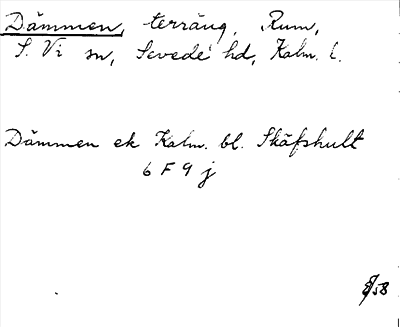 Dämmen, terräng, Rum,
S. Vi sn, Sevede hd, Kalm. l.
Dämmen ek Kalm. bl. Skäfshult
6 F 9 j